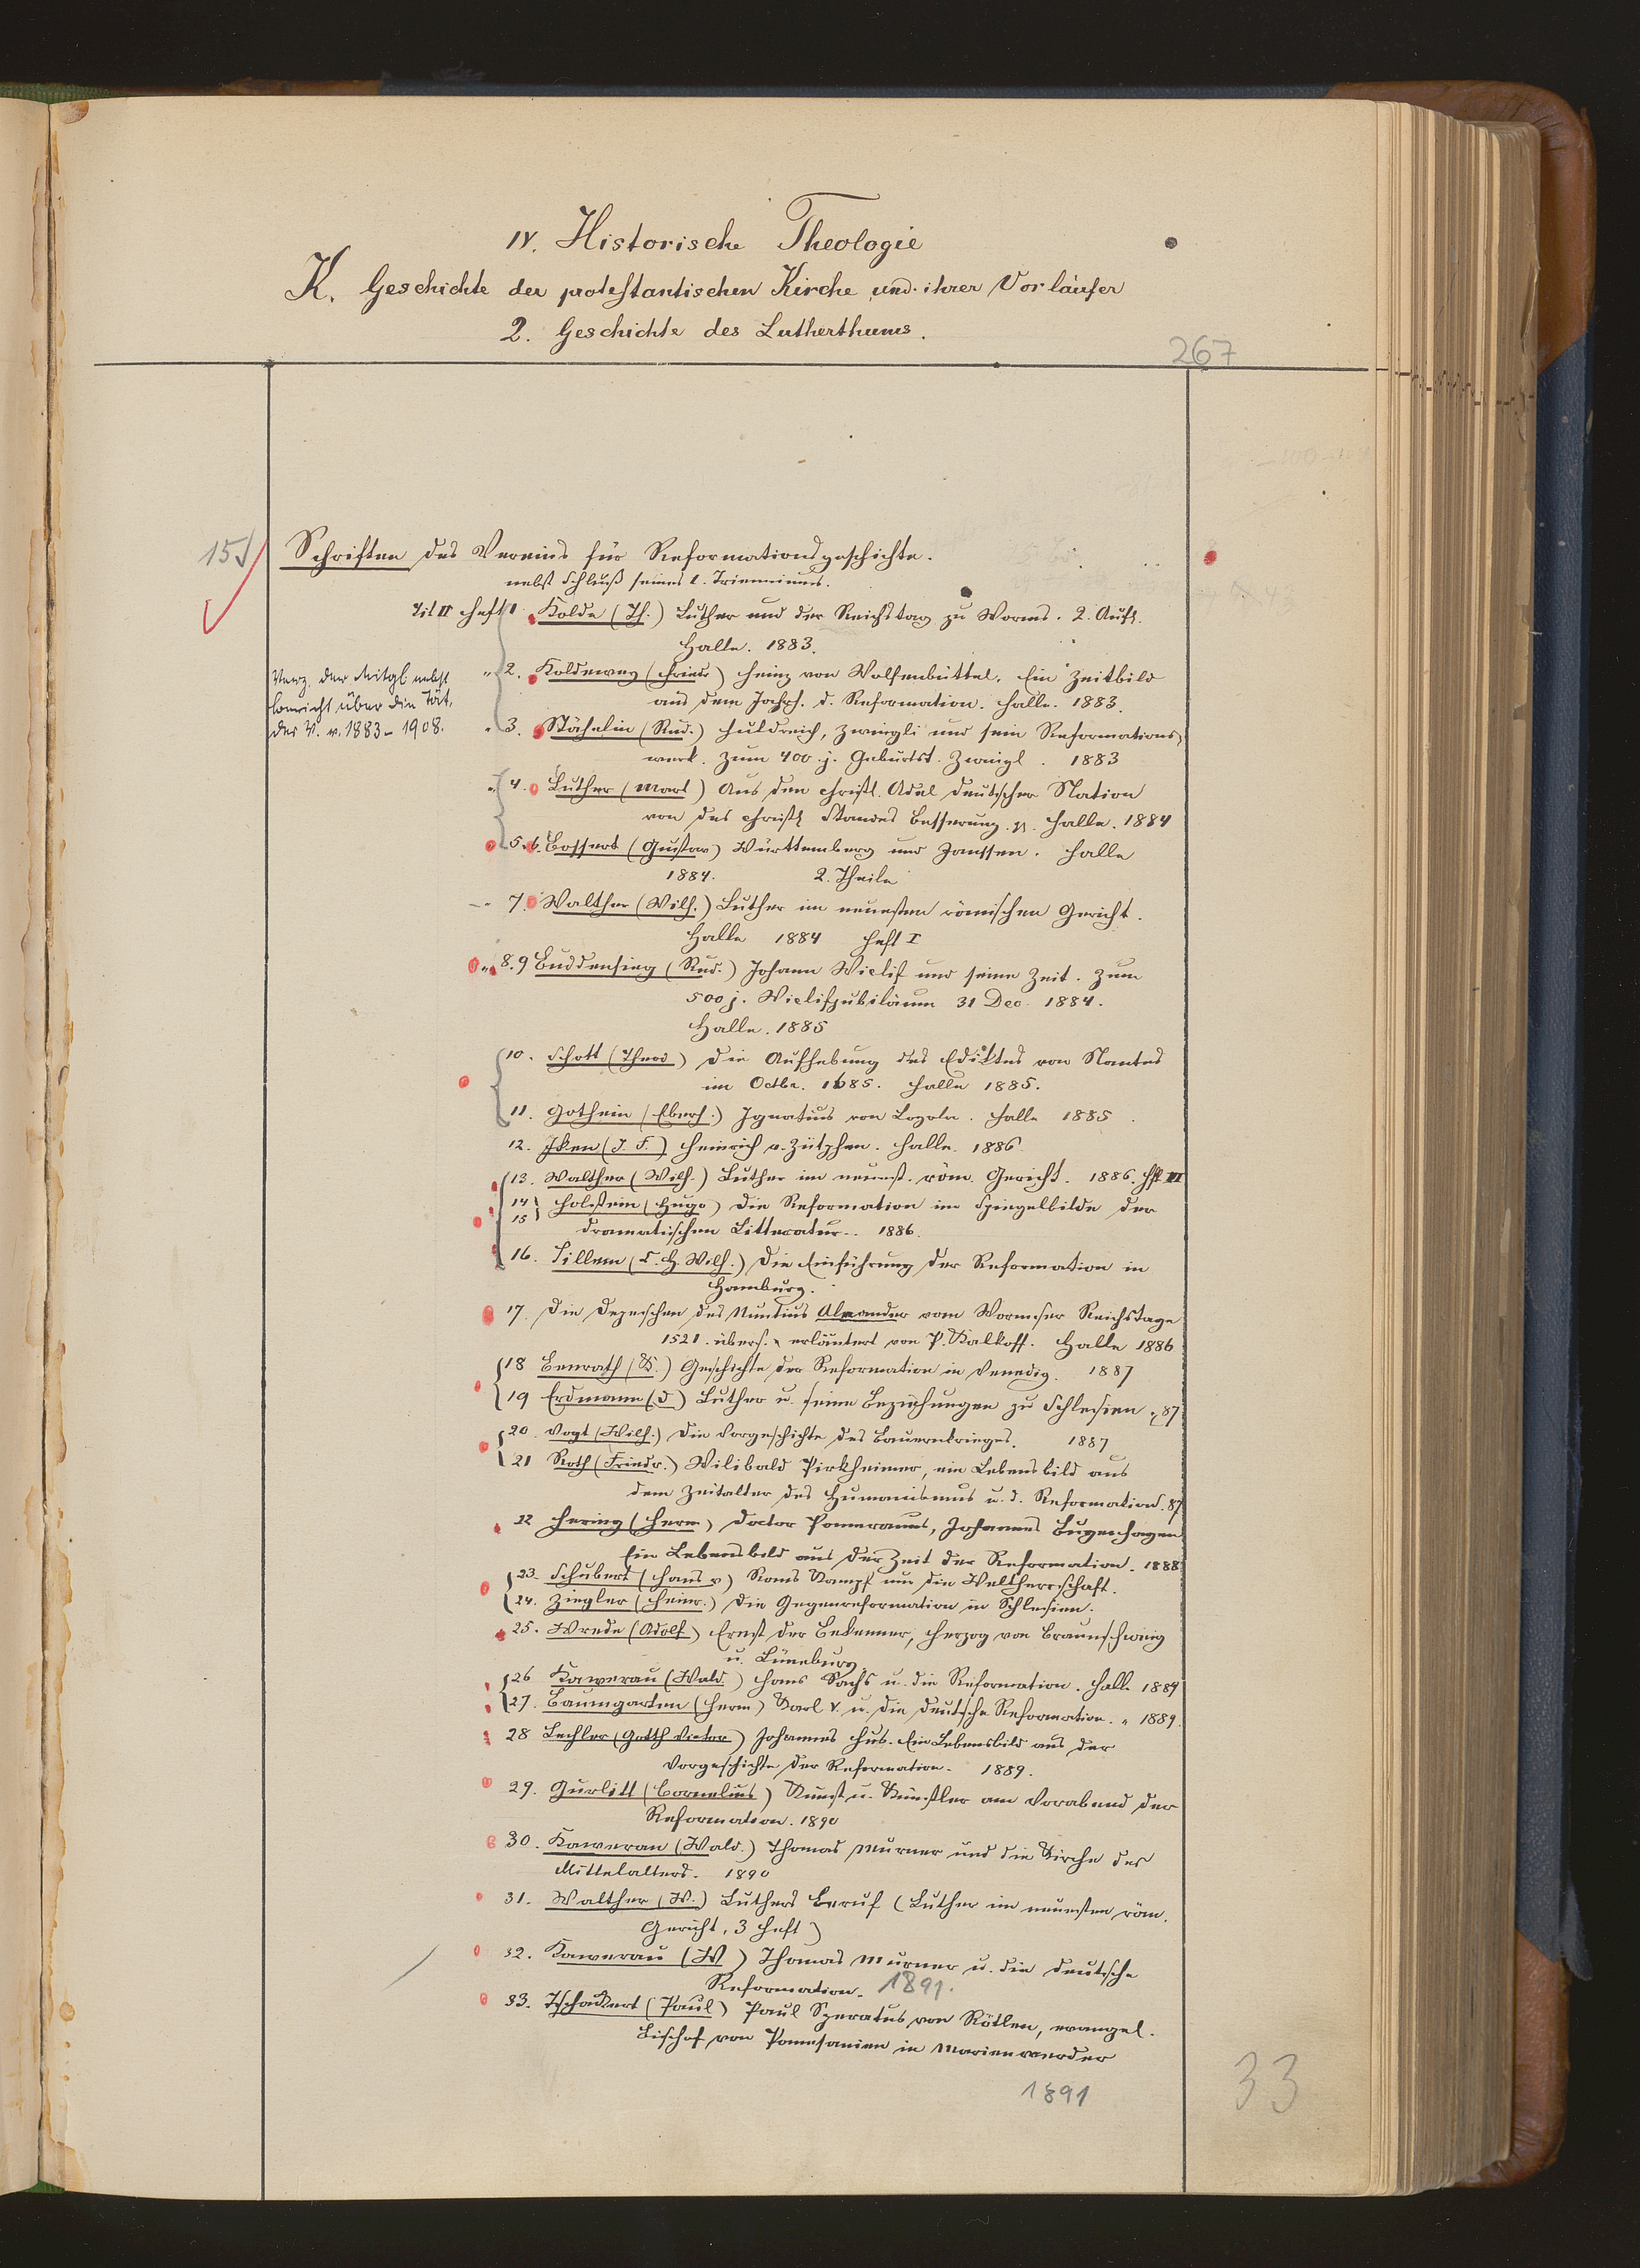 IV. Historische Theologie
K. Geschichte der protestantischen Kirche und ihrer Vorläufer
2. Geschichte des Lutherthums.
267
15
Schriften des Vereins für Reformationsgeschichte.
nebst Schluß seines 1. Trienniums.
Heft 1. Kolde (Th.) Luther und der Reichstag zu Worms. 2. Aufl.
Halle. 1883.
Verz. der Mitgl. nebst
bericht über die Tät.
des V. v. 1883-1908.
" 2. Koldewey (Friedr) Heinz von Wolfenbüttel. Ein Zeitbild
aus dem Jahrh. d. Reformation. Halle. 1883.
" 3. Stähelin (Rud.) Huldreich, Zwingli und sein Reformations
werk. Zum 400.j. Geburtst. Zwingl. 1883
" 4. Luther (Mart) Aus den christl. Adel deutscher Nation
von des christl. Standes Besserung. Halle. 1884
5.6. Bossert (Gustav) Württemberg und Janssen. Halle
1884. 2. Theile
" 7. Walther (Wilh.) Luther im neuesten römischen Gericht.
Halle 1884 Heft I
" 8.9 Buddensieg (Rud.) Johann Wiclif und seine Zeit. Zum
500j. Wiclifjubiläum 31 Dec. 1884.
Halle. 1885
10. Schott (Theod) Die Aufhebung des Ediktes von Nantes
im Octbr. 1685. Halle 1885.
11. Gothein (Eberh.) Ignatius von Loyola. Halle 1885.
12. Iken (J. F.) Heinrich v. Zütphen. Halle. 1886.
13. Walther (Wilh.) Luther im neuest. röm. Gericht. 1886. Hft II
14 15 Holstein (Hugo) Die Reformation im Spiegelbilde der
dramatischen Litteratur.. 1886.
16. Sillem (C. H. Wilh.) Die Einführung der Reformation in
Hamburg.
17. Die Depeschen des Nuntius Aleander vom Wormser Reichstage
1521. übers. u. erläutert von P. Kalkoff. Halle 1886
18 Benrath (K.) Geschichte der Reformation in Venedig. 1887
19 Erdmann (D) Luther u. seine Beziehungen zu Schlesien. 87
20. Vogt (Wilh.) Die Vorgeschichte des Bauernkrieges. 1887
21 Roth (Friedr.) Wilibald Pirkheimer, ein Lebensbild aus
dem Zeitalter des Humanismus u. d. Reformation. 87
22 Hering (Herm) Doctor Pomeranus, Johannes Bugenhagen
Ein Lebensbild aus der Zeit der Reformation. 1888
23. Schubert (Hans v) Roms Kampf um die Weltherrschaft.
24. Ziegler (Heinr.) Die Gegenreformation in Schlesien.
25. Wrede (Adolf) Ernst der Bekenner, Herzog von Braunschweig
u. Lüneburg
26 Kawerau (Wald.) Hans Sachs u. die Reformation. Halle 1889
27. Baumgarten (Herm) Karl V. u. die deutsche Reformation. " 1889.
28 Lechler (Gotth Victor) Johannes Hus. Ein Lebensbild aus der
Vorgeschichte der Reformation. 1889.
29. Gurlitt (Cornelius) Kunst u. Künstler am Vorabend der
Reformation. 1890
30. Kawerau (Wald.) Thomas Murner und die Kirche des
Mittelalters. 1890
31. Walther (W.) Luthers Beruf (Luther im neuesten röm.
Gericht, 3 Heft)
32. Kawerau (W) Thomas Murner u. die deutsche
Reformation. 1891.
33. Tschackert (Paul) Paul Speratus von Rötlen, evangel.
Bischof von Pomesanien in Marienwerder
1891
33